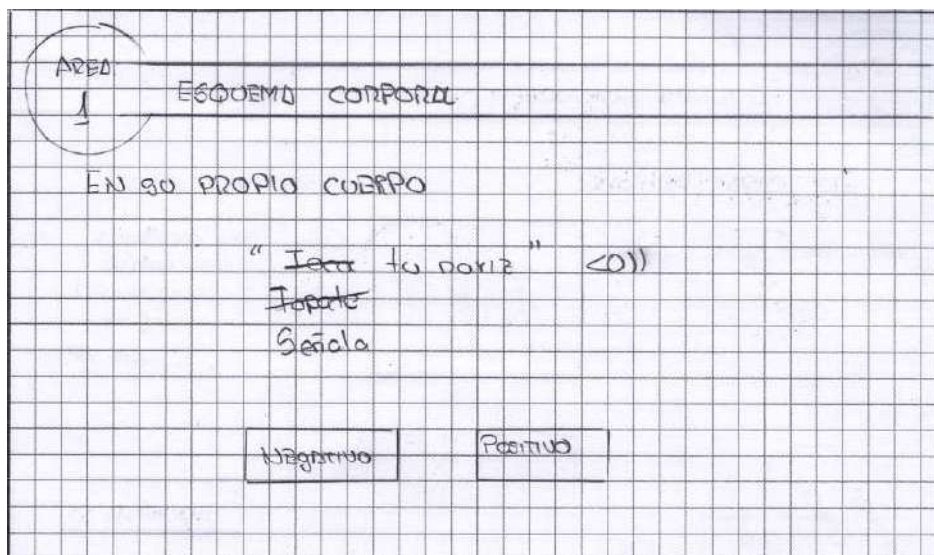 AREA
1
ESQUEMA CORPORAL
EN SU PROPIO CUERPO
"Toca tu nariz"
Tapate
Señala
Negativo
Positivo